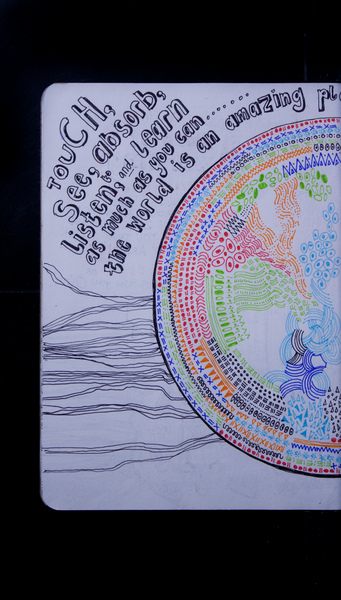 TouCH,
See, absorb,
listen, to and Learn
as much as you can.......
the world is an amazing pl